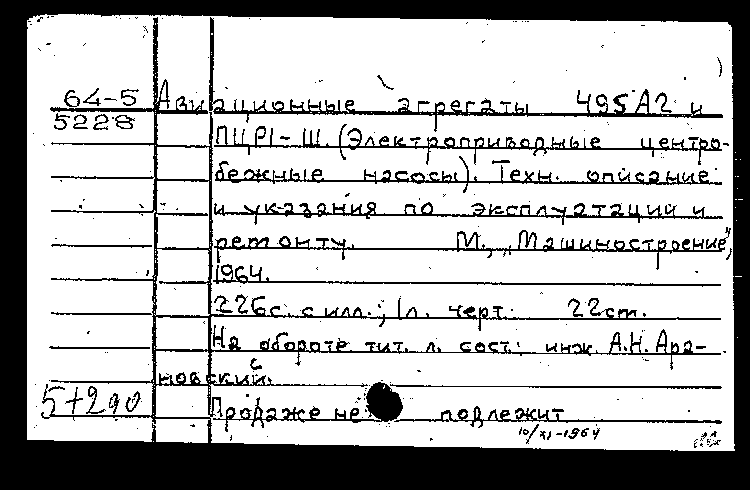 64-5 Авиационные агрегаты 495А2 и
5228 ПЦР1-Ш. (Электроприводные центро-
бежные насосы). Техн. описание
и указания по эксплуатации и
ремонту. М., „Машиностроение",
1964.
226с. с илл.; 1л. черт. 22см.
На обороте тит. л. сост.: инж. А.Н. Ара-
новский.
5+290 Продаже не подлежит
10/XI-1964